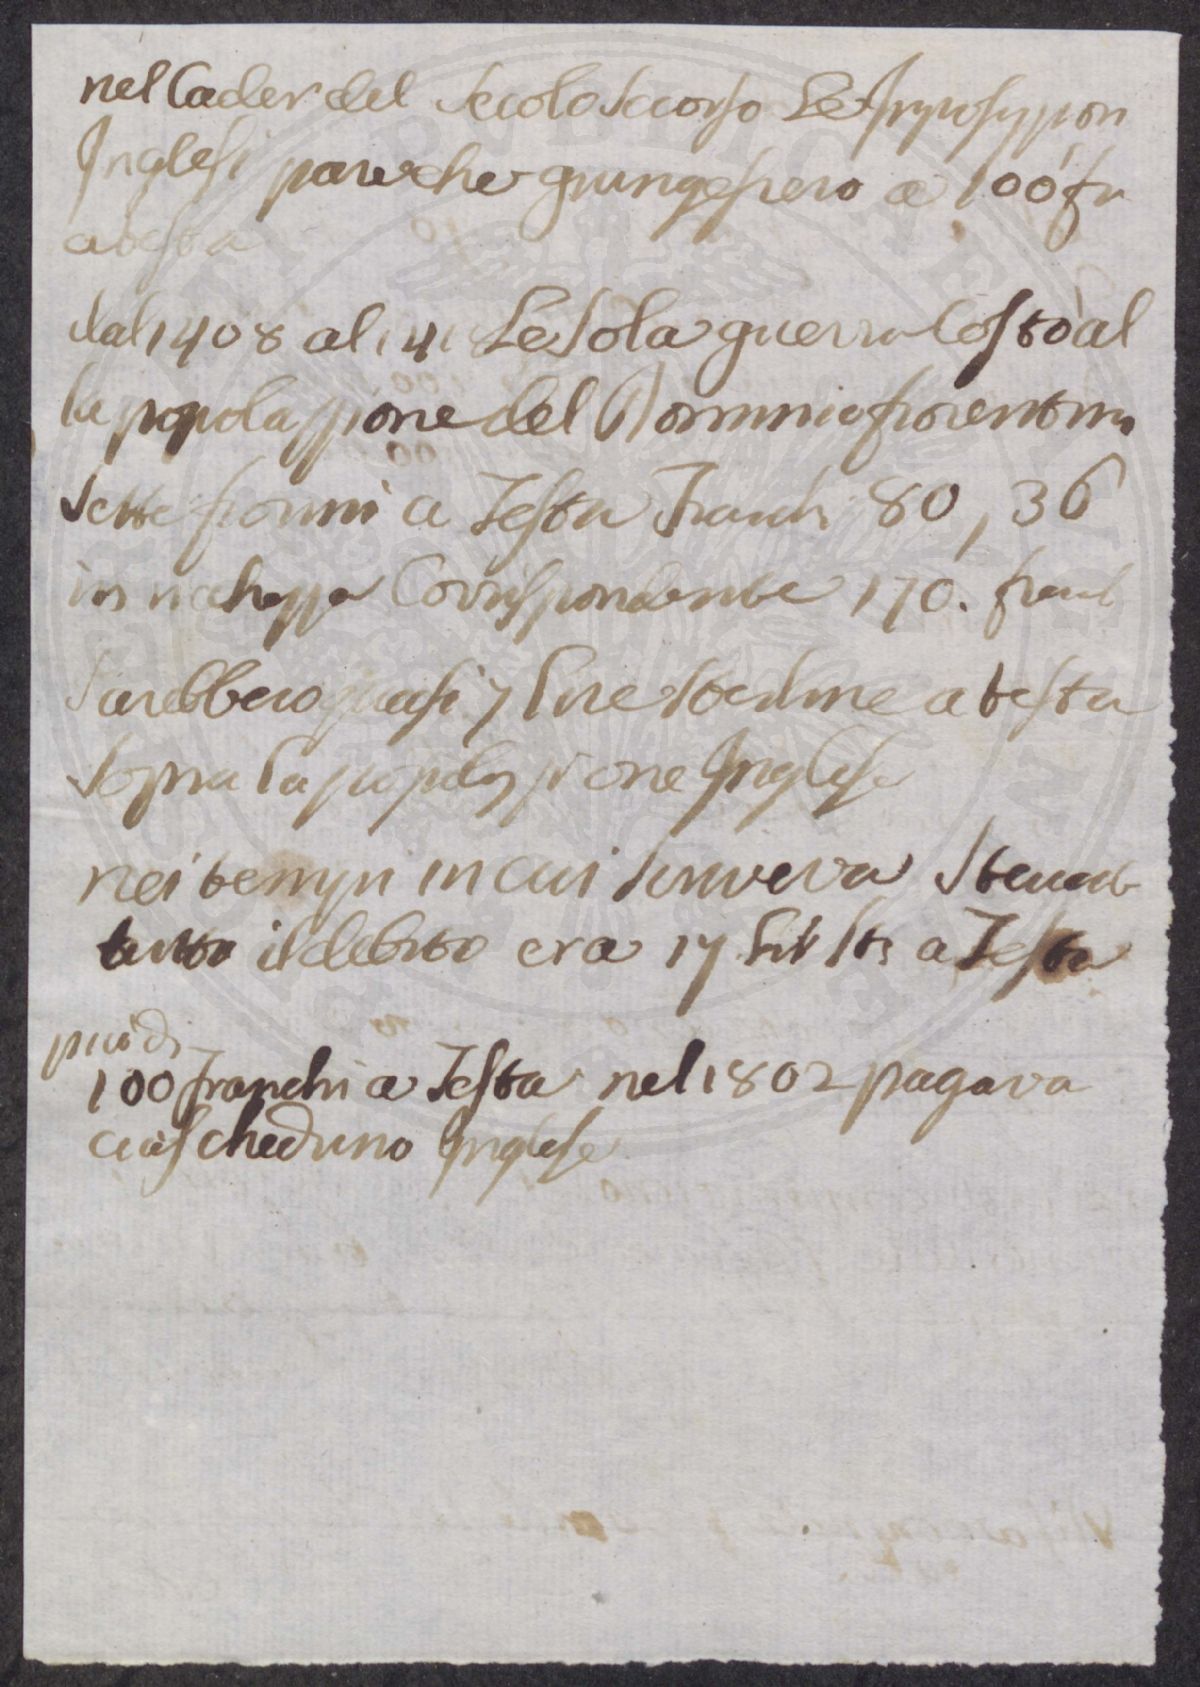 nel Cader del Secolo Scorso Le Imposizion
Inglesi pare che giungessero a 100 fr
a testa
dal 1408 al 141 Le Sola guerra Costò al
la popolazzione del Dominio fiorentino
Sette fiorini a Testa Franchi 80, 36
in ricchezza Corrispondente 170. franch
Sarebbero quasi 7 Lire Sterline a testa
Sopra la popolazzione Inglese
nei tempi in cui Scriveva Steuart
tutto il debito era 17 Lir Ste a Testa
piu di
100 franchi a Testa nel 1802 pagava
ciascheduno Inglese